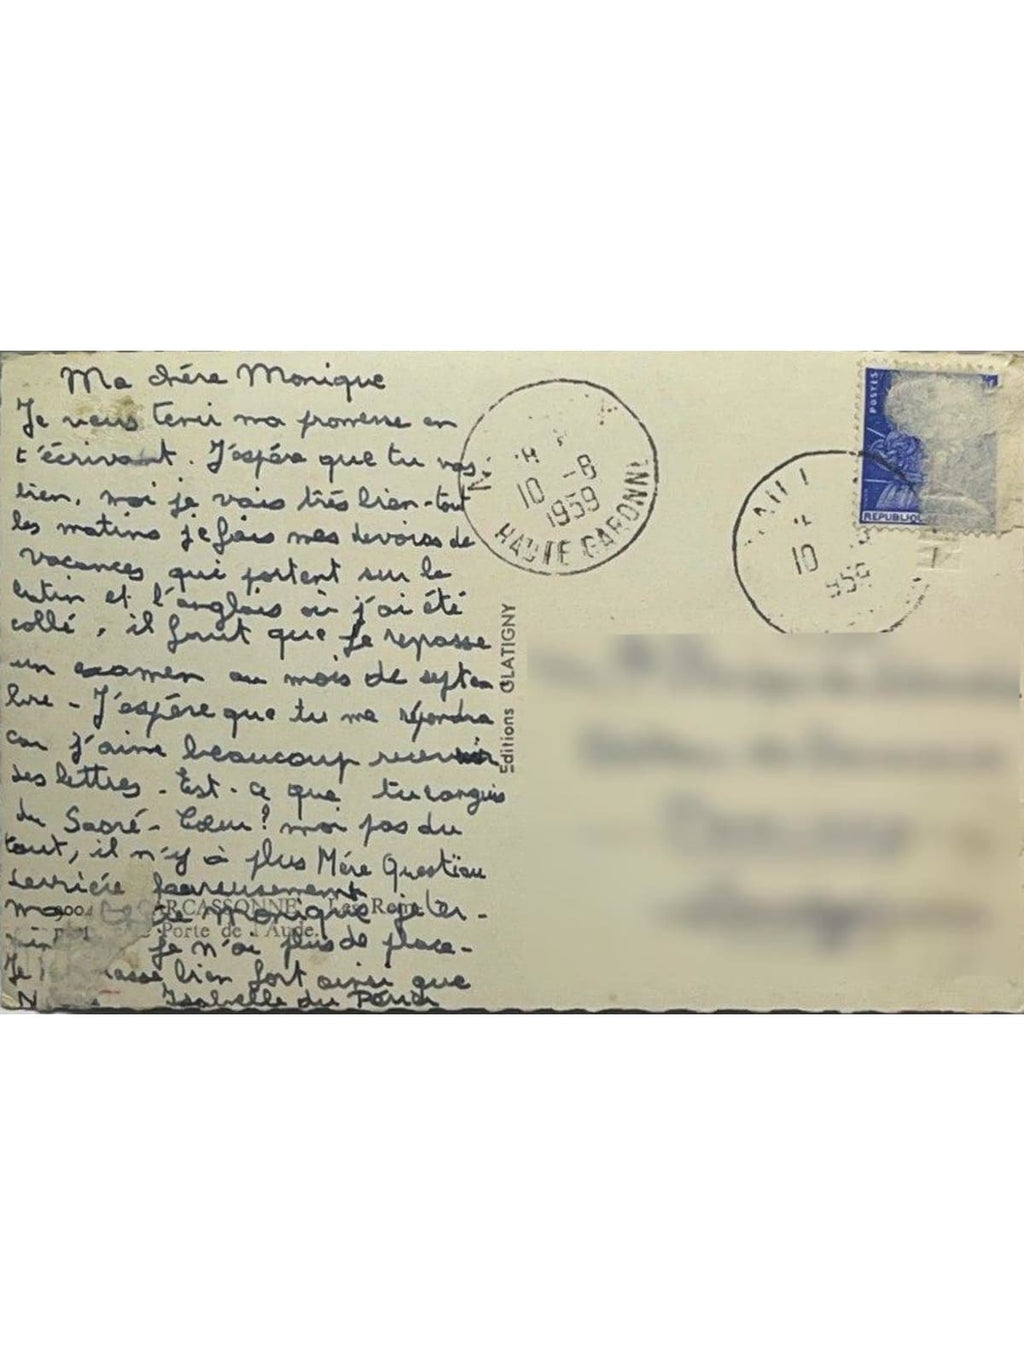 Ma chére Monique
Je viens tenir ma promesse en
t'écrivant. J'espére que tu vas
bien, moi je vais trés bien - tout
les matins je fais mes devoirs de
vacances qui portent sur le
latin et l'anglais où j'ai été
collé, il faut que je repasse
un examen au mois de septem
bre - J'espére que tu me répondra
car j'aime beaucoup recevoir
des lettres - Est-ce que tu languis
du Sacré-Cœur? moi pas du
tout, il n'y à plus Mére
heureusement
Monique je ter-
je n'ai plus de place -
Je bien fort ainsi que
Isabelle du
CARCASSONNE
Porte de l'Aude.
Editions GLATIGNY
10 -8
1959
HAUTE GARONNE
10
959
POSTES
REPUBLIQUE